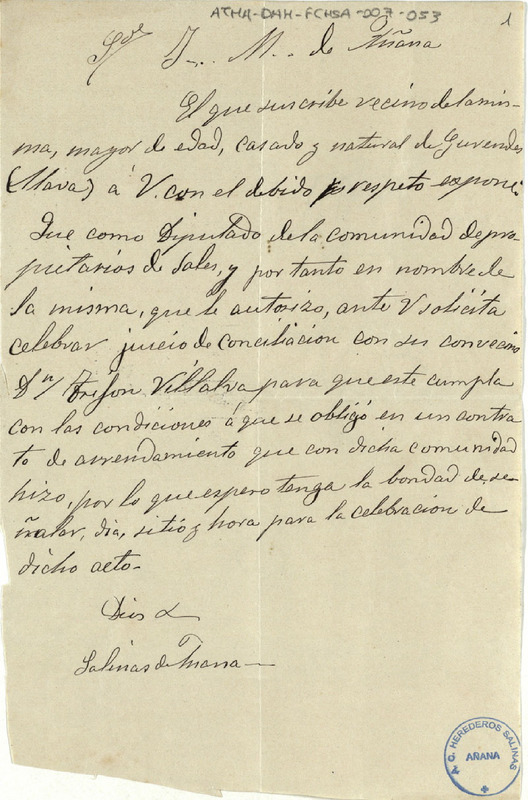 ATHA-DAH-FCHSA-007-053
1
Sor J. M. de Añana
El que suscribe vecino de la mis-
ma, mayor de edad, casado y natural de Gurendes
(Alava) á V. con el debido respeto expone:
Que como Diputado de la comunidad de pro-
pietarios de sales, y por tanto en nombre de
la misma, que le autorizo, ante V solicita
celebrar juicio de conciliacion con su convecino
Dn Trifon Villalva para que este cumpla
con las condiciones á que se obligó en un contra
to de arrendamiento que con dicha comunidad
hizo, por lo que espero tenga la bondad de, se-
ñalar, dia, sitio y hora para la celebracion de
dicho acto-
Dios &
Salinas de Añana-
A. C. HEREDEROS SALINAS
AÑANA